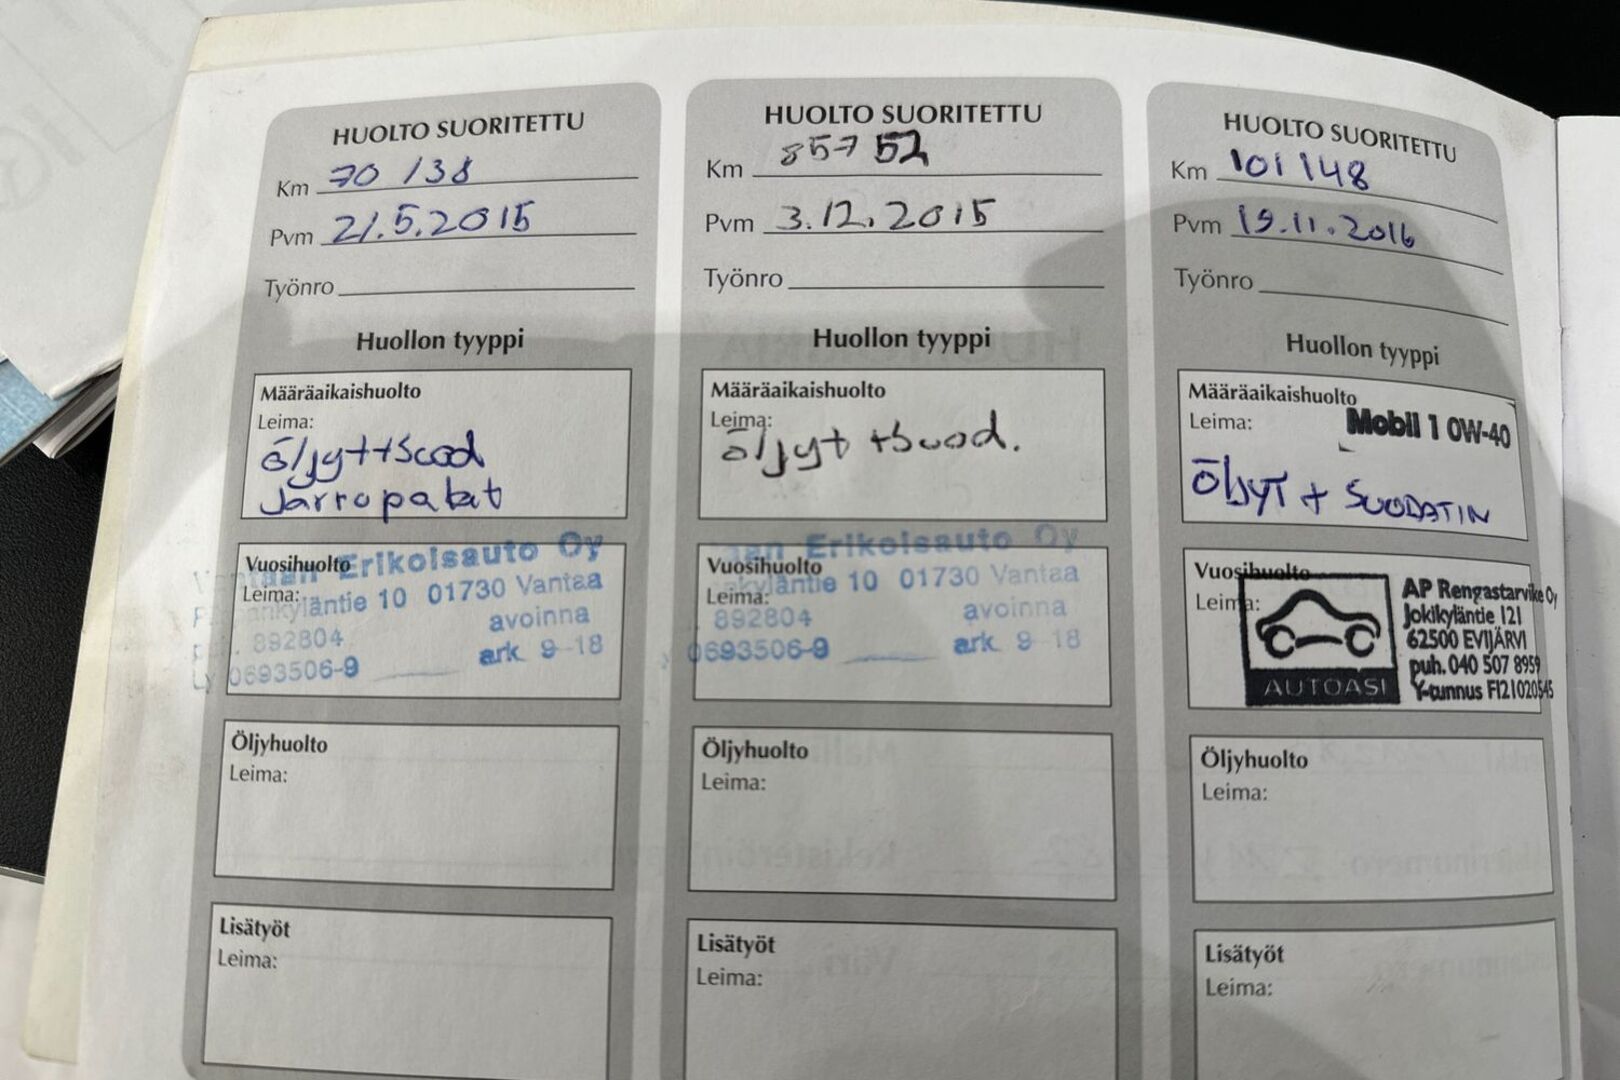 HUOLTO SUORITETTU
Km 70 138
Pvm 21.5.2015
Työnro
Huollon tyyppi
Määräaikaishuolto
Leima:
öljyt+suod
Jarrupalat
Vuosihuolto
Leima:
Vantaan Erikoisauto Oy
kyläntie 10 01730 Vantaa
892804 avoinna
Ly 0693506-9 ark. 9-18
Öljyhuolto
Leima:
Lisätyöt
Leima:
HUOLTO SUORITETTU
Km 85752
Pvm 3.12.2015
Työnro
Huollon tyyppi
Määräaikaishuolto
Leima:
öljyt +suod.
Vuosihuolto
Leima:
Erikoisauto Oy
kyläntie 10 01730 Vantaa
892804 avoinna
0693506-9 ark. 9-18
Öljyhuolto
Leima:
Lisätyöt
Leima:
HUOLTO SUORITETTU
Km 101 148
Pvm 19.11.2016
Työnro
Huollon tyyppi
Määräaikaishuolto
Leima:
Mobil 1 0W-40
Öljyt + SUODATIN
Vuosihuolto
Leima:
AUTOASI
AP Rengastarvike Oy
Jokikyläntie 121
62500 EVIJÄRVI
puh. 040 507 8959
Y-tunnus FI21020545
Öljyhuolto
Leima:
Lisätyöt
Leima: